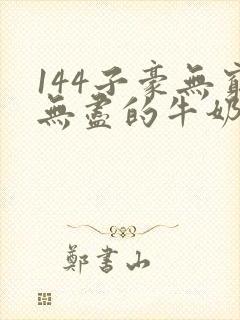 144子豪無窮
無盡的牛奶
鄭書山